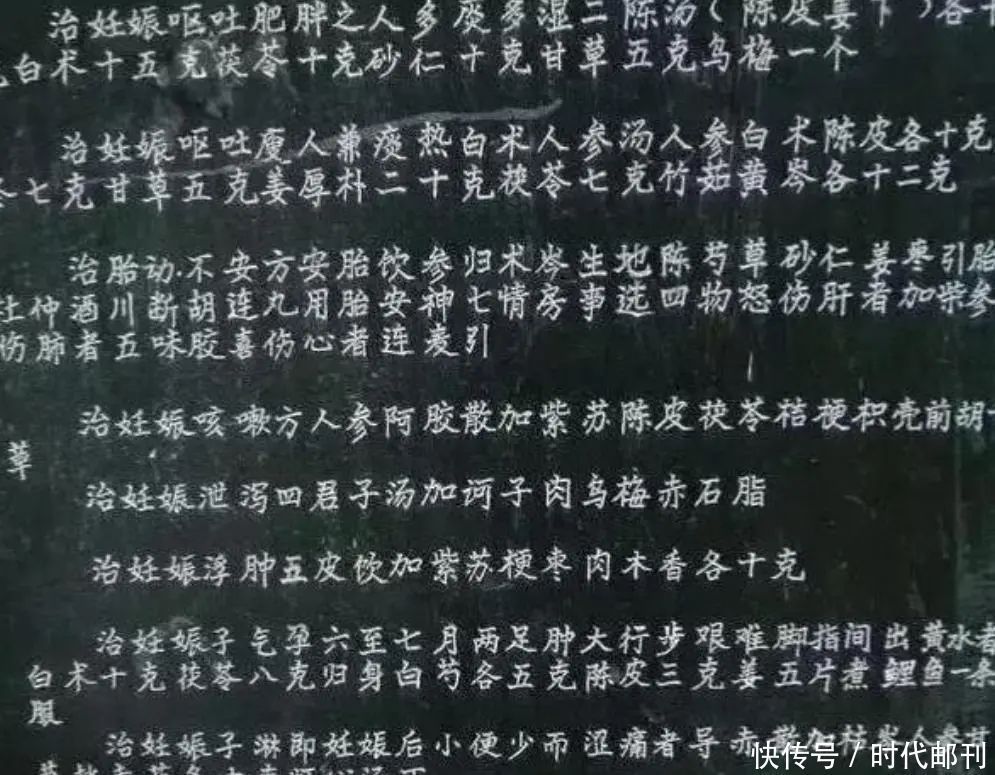 治妊娠呕吐肥胖之人多痰多湿二陈汤(陈皮姜下)各十
白术十五克茯苓十克砂仁十克甘草五克乌梅一个
治妊娠呕吐廋人兼痰热白术人参汤人参白术陈皮各十克
七克甘草五克姜厚朴二十克茯苓七克竹茹黄岑各十二克
治胎动·不安方安胎饮参归术岑生地陈芍草砂仁姜枣引胎
杜仲酒川断胡连九用胎安神七情房事选四物怒伤肝者加柴参
伤肺者五味胶喜伤心者连麦引
治妊娠咳嗽方人参阿胶散加紫苏陈皮茯苓桔梗枳壳前胡
草
治妊娠泄泻四君子汤加诃子肉乌梅赤石脂
治妊娠浮肿五皮饮加紫苏梗枣肉木香各十克
治妊娠子气孕六至七月两足肿大行步艰难脚指间出黄水者
白术十克茯苓八克归身白芍各五克陈皮三克姜五片煮鲤鱼一条
服
治妊娠子淋即妊娠后小便少而涩痛者导赤散加
快传号/时代邮刊